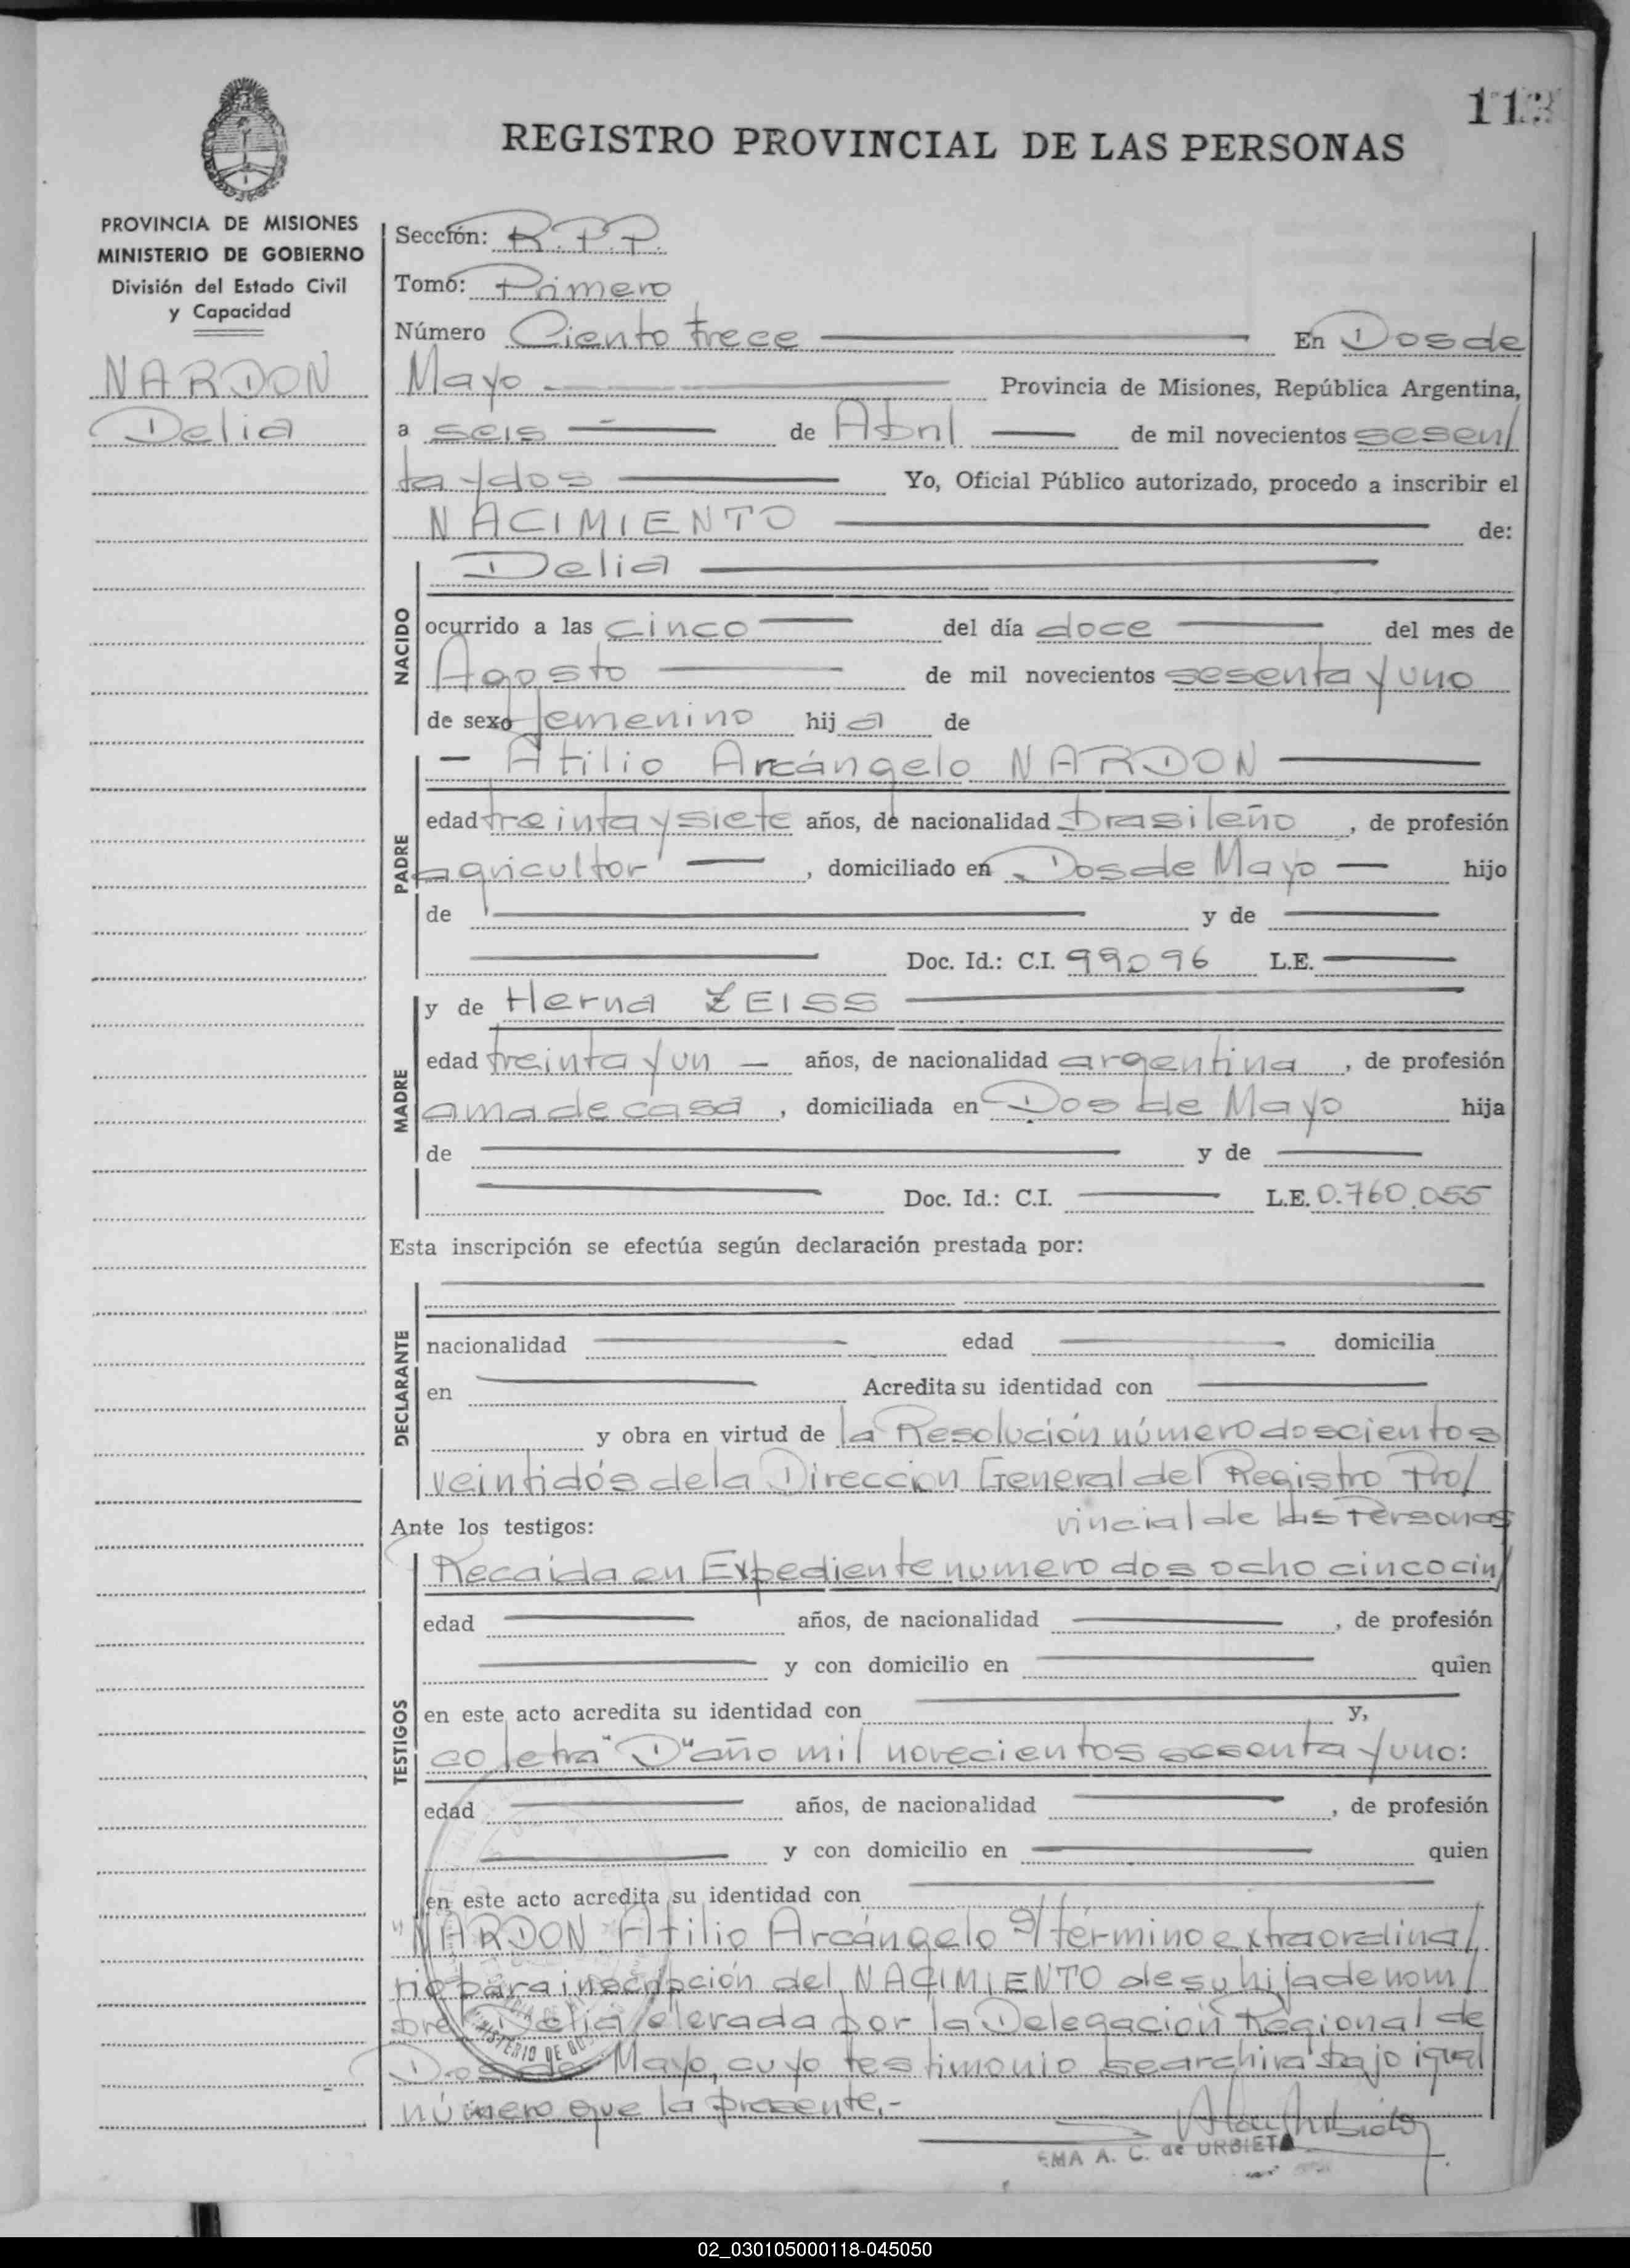 113
REGISTRO PROVINCIAL DE LAS PERSONAS
PROVINCIA DE MISIONES
MINISTERIO DE GOBIERNO
División del Estado Civil
y Capacidad
NARDON
Delia
Sección: R.P.P.
Tomo: Primero
Número Ciento trece En Dos de
Mayo Provincia de Misiones, República Argentina,
a seis de Abril de mil novecientos sesen/
ta y dos Yo, Oficial Público autorizado, procedo a inscribir el
NACIMIENTO de:
NACIDO
Delia
ocurrido a las cinco del día doce del mes de
Agosto de mil novecientos sesenta y uno
de sexo femenino hija de
PADRE
Atilio Arcángelo NARDON
edad treinta y siete años, de nacionalidad brasileño, de profesión
agricultor, domiciliado en Dos de Mayo hijo
de y de
Doc. Id.: C.I. 99096 L.E.
MADRE
y de Herna ZEISS
edad treinta y un años, de nacionalidad argentina, de profesión
ama de casa, domiciliada en Dos de Mayo hija
de y de
Doc. Id.: C.I. L.E. 0.760.055
Esta inscripción se efectúa según declaración prestada por:
DECLARANTE
nacionalidad edad domicilia
en Acredita su identidad con
y obra en virtud de la Resolución número doscientos
veintidós de la Direccion General del Registro Pro/
vincial de las Personas
Ante los testigos:
TESTIGOS
Recaida en Expediente numero dos ocho cinco cin/
edad años, de nacionalidad, de profesión
y con domicilio en quien
en este acto acredita su identidad con y,
co letra "D" año mil novecientos sesenta y uno:
edad años, de nacionalidad, de profesión
y con domicilio en quien
en este acto acredita su identidad con
"NARDON Atilio Arcángelo s/término extraordina/
rio para inscripción del NACIMIENTO de su hija de nom/
bre Delia elevada por la Delegación Regional de
Dos de Mayo, cuyo testimonio se archiva bajo igual
número que la presente.-
EMA A. C. de URBIETA
02_030105000118-045050